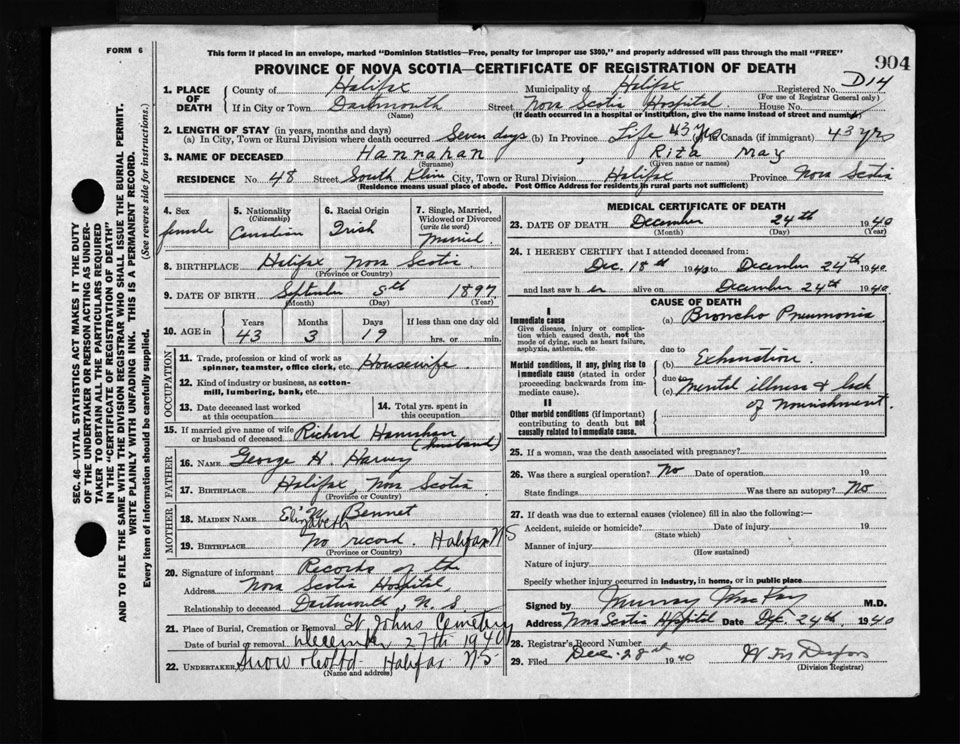 FORM 6
This form if placed in an envelope, marked "Dominion Statistics—Free, penalty for improper use $300," and properly addressed will pass through the mail "FREE"
904
PROVINCE OF NOVA SCOTIA—CERTIFICATE OF REGISTRATION OF DEATH
D14
1. PLACE OF DEATH
County of Halifax Municipality of Halifax Registered No.
(For use of Registrar General only)
If in City or Town Dartmouth Street Nova Scotia Hospital House No.
(Name) (If death occurred in a hospital or institution, give the name instead of street and number)
2. LENGTH OF STAY (in years, months and days)
(a) In City, Town or Rural Division where death occurred Seven days (b) In Province Life 43 yrs (c) In Canada (if immigrant) 43 yrs
3. NAME OF DECEASED Hannahan, Rita May
(Surname) (Given name or names)
RESIDENCE No. 48 Street South Kline City, Town or Rural Division Halifax Province Nova Scotia
(Residence means usual place of abode. Post Office Address for residents in rural parts not sufficient)
4. Sex female
5. Nationality (Citizenship) Canadian
6. Racial Origin Irish
7. Single, Married, Widowed or Divorced (write the word) Married
8. BIRTHPLACE Halifax, Nova Scotia
(Province or Country)
9. DATE OF BIRTH September 5th 1897
(Month) (Day) (Year)
10. AGE in Years 43 Months 3 Days 19 If less than one day old hrs. or min.
OCCUPATION
11. Trade, profession or kind of work as spinner, teamster, office clerk, etc. Housewife
12. Kind of industry or business, as cotton-mill, lumbering, bank, etc.
13. Date deceased last worked at this occupation
14. Total yrs. spent in this occupation
15. If married give name of wife or husband of deceased Richard Hannahan (husband)
FATHER
16. NAME George H. Harvey
17. BIRTHPLACE Halifax, Nova Scotia
(Province or Country)
MOTHER
18. MAIDEN NAME Elizabeth M. Bennet
19. BIRTHPLACE No record. Halifax N S
(Province or Country)
20. Signature of informant Records of the
Address Nova Scotia Hospital,
Relationship to deceased Dartmouth, N. S.
21. Place of Burial, Cremation or Removal St Johns Cemetery
Date of burial or removal December 27th 1940
22. UNDERTAKER Snow & Co Ltd Halifax N S
(Name and address)
MEDICAL CERTIFICATE OF DEATH
23. DATE OF DEATH December 24th 1940
(Month) (Day) (Year)
24. I HEREBY CERTIFY that I attended deceased from:
Dec. 18th 1940 to December 24th 1940
and last saw her alive on December 24th 1940
CAUSE OF DEATH
I
Immediate cause
Give disease, injury or complication which caused death, not the mode of dying, such as heart failure, asphyxia, asthenia, etc.
(a) Broncho Pneumonia
due to
Morbid conditions, if any, giving rise to immediate cause (stated in order proceeding backwards from immediate cause).
(b) Exhaustion
due to
(c) Mental illness & lack of nourishment
II
Other morbid conditions (if important) contributing to death but not causally related to immediate cause.
25. If a woman, was the death associated with pregnancy?
26. Was there a surgical operation? No Date of operation 19
State findings Was there an autopsy? No
27. If death was due to external causes (violence) fill in also the following:—
Accident, suicide or homicide? Date of injury 19
(State which)
Manner of injury
(How sustained)
Nature of injury
Specify whether injury occurred in industry, in home, or in public place
Signed by Murray MacKay M.D.
Address Nova Scotia Hospital Date Dec. 24th 1940
28. Registrar's Record Number
29. Filed Dec. 28th 1940
(Division Registrar)
SEC. 46—VITAL STATISTICS ACT MAKES IT THE DUTY
OF THE UNDERTAKER OR PERSON ACTING AS UNDER-
TAKER TO OBTAIN ALL THE PARTICULARS REQUIRED
IN THE "CERTIFICATE OF REGISTRATION OF DEATH"
AND TO FILE THE SAME WITH THE DIVISION REGISTRAR WHO SHALL ISSUE THE BURIAL PERMIT.
WRITE PLAINLY WITH UNFADING INK. THIS IS A PERMANENT RECORD.
Every item of information should be carefully supplied. (See reverse side for instructions.)